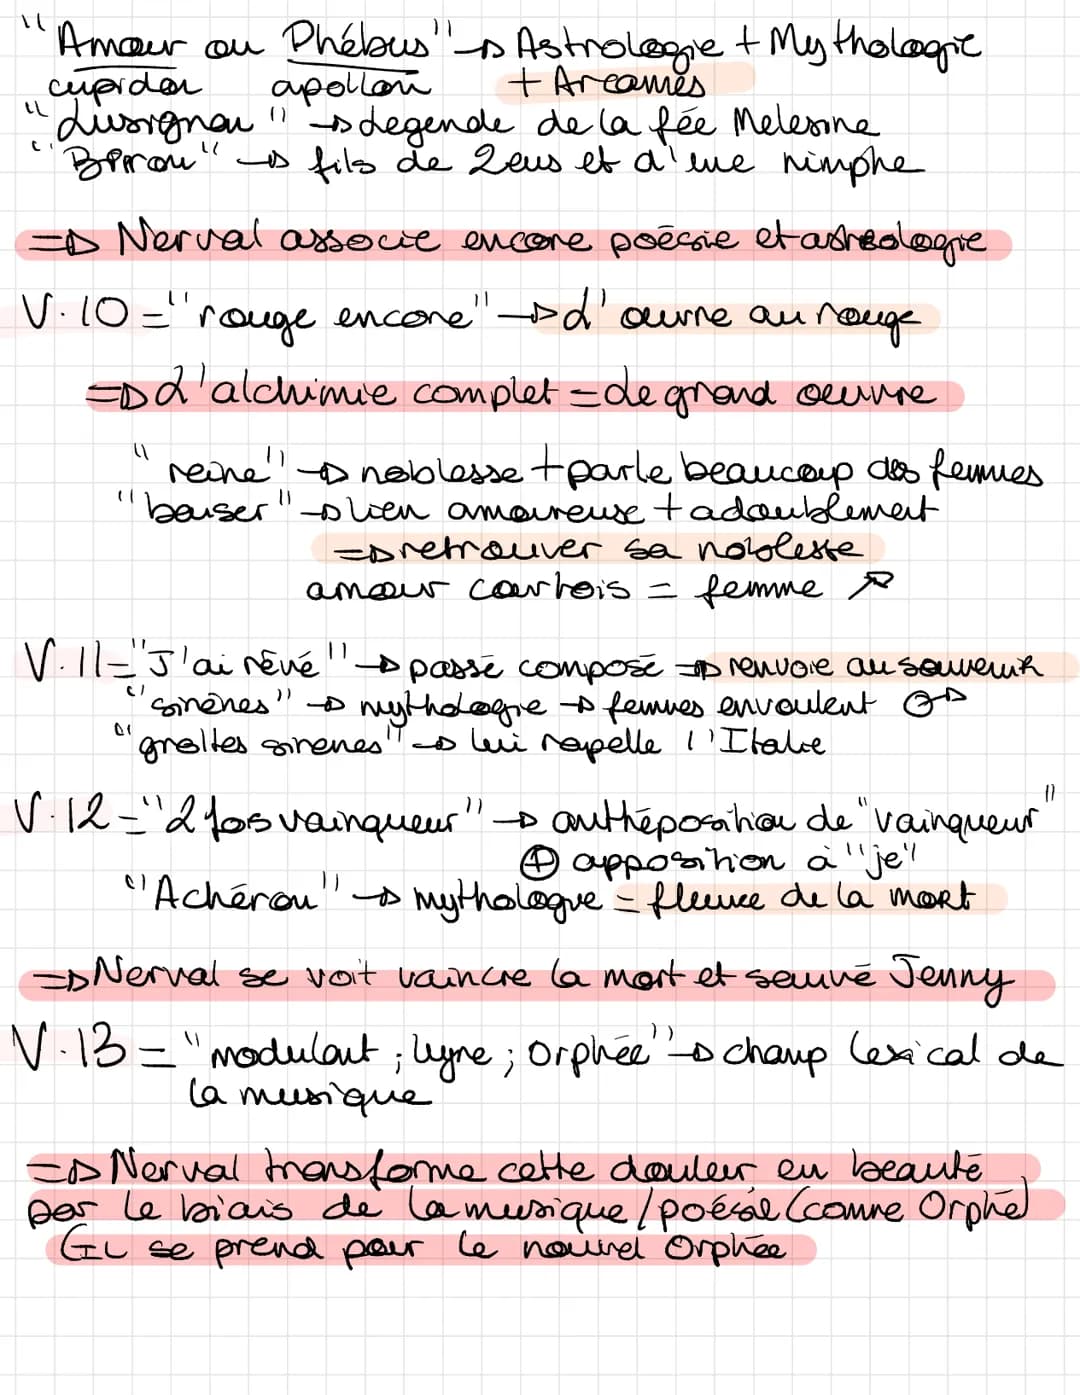 "Amour ou Phébus" → Astrologie + Mythologie
cupidon apollon + Arcanes
"Lusignan" → légende de la fée Mélesine
"Biron" → fils de Zeus et d'une nimphe
=> Nerval associe encore poésie et astrologie
V.10 = "rouge encore" → L'œuvre au rouge
=> L'alchimie complet = le grand oeuvre
"reine" → noblesse + parle beaucoup des femmes
"baiser" → lien amoureuse + adoublement
=> retrouver sa noblesse
amour courtois = femme ↗
V.11 = "J'ai rêvé" → passé composé => renvoie au souvenir
"sirènes" → mythologie → femmes envoulent ♂
"grottes sirenes" → lui rapelle l'Italie
V.12 = "2 fois vainqueur" → anthéposition de "vainqueur"
⊕ apposition à "je"
"Achéron" → mythologue = fleuve de la mort
=> Nerval se voit vaincre la mort et sauvé Jenny
V.13 = "modulant ; lyre ; Orphée" → champ lexical de
la musique
=> Nerval transforme cette douleur en beauté
par le biais de la musique/poésie (comme Orphé)
GIL se prend pour le nouvel Orphée